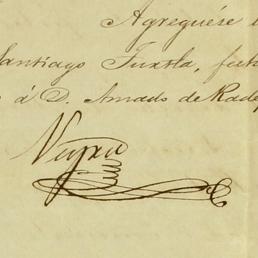 Agreguése
Santiago Tuxtla, fech
á D. Amado de Rade